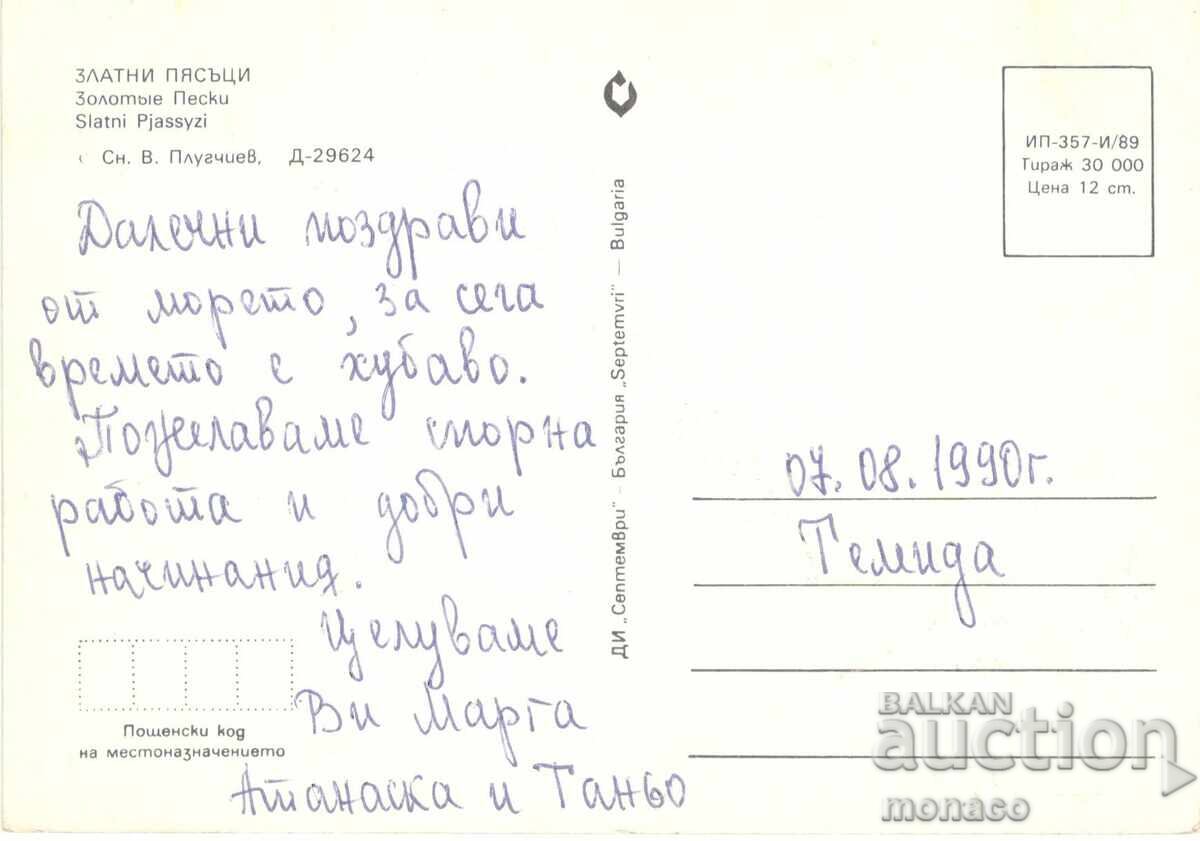 ЗЛАТНИ ПЯСЪЦИ
Золотые Пески
Slatni Pjassyzi
Сн. В. Плугчиев, Д-29624
Далечни поздрави
от морето, за сега
времето е хубаво.
Пожелаваме спорна
работа и добри
начинания.
Целуваме
Ви Марга
Атанаска и Таньо
Пощенски код
на местоназначението
ДИ „Септември" - България „Septemvri" — Bulgaria
ИП-357-И/89
Тираж 30 000
Цена 12 ст.
07.08.1990г.
Темида
BALKAN
auction
monaco